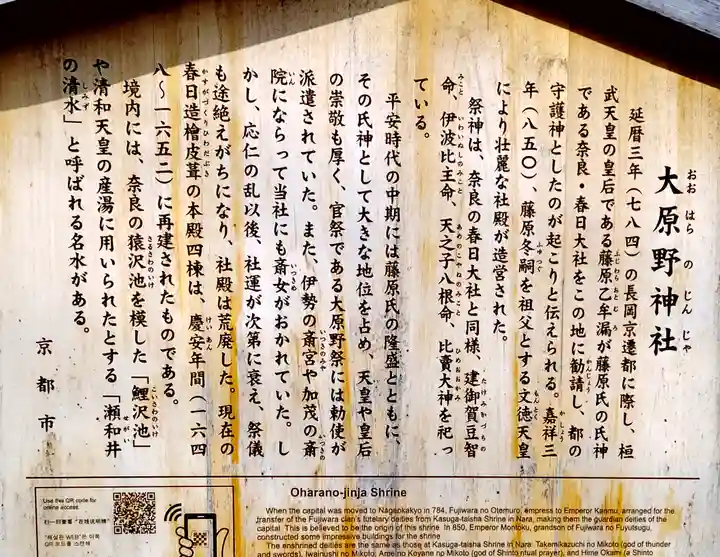 大原野神社
おお はら の じん じゃ
延暦三年(七八四)の長岡京遷都に際し、桓
武天皇の皇后である藤原乙牟漏が藤原氏の氏神
ふじわらおとむろ
である奈良・春日大社をこの地に勧請し、都の
かんじょう
守護神としたのが起こりと伝えられる。嘉祥三
かしょう
年(八五〇)、藤原冬嗣を祖父とする文徳天皇
ふゆつぐ
もんとく
により壮麗な社殿が造営された。
祭神は、奈良の春日大社と同様、建御賀豆智
たけみかづちの
命、伊波比主命、天之子八根命、比賣大神を祀っ
みこと いわいぬしのみこと あめのこやねのみこと ひめおおかみ
ている。
平安時代の中期には藤原氏の隆盛とともに、
その氏神として大きな地位を占め、天皇や皇后
の崇敬も厚く、官祭である大原野祭には勅使が
派遣されていた。また、伊勢の斎宮や加茂の斎
いつきのみや
いつきの
院にならって当社にも斎女がおかれていた。し
いん
いつきめ
かし、応仁の乱以後、社運が次第に衰え、祭儀
も途絶えがちになり、社殿は荒廃した。現在の
春日造檜皮葺の本殿四棟は、慶安年間(一六四
かすがづくりひわだぶき
けいあん
八〜一六五二)に再建されたものである。
境内には、奈良の猿沢池を模した「鯉沢池」
さるさわのいけ
こいさわのいけ
や清和天皇の産湯に用いられたとする「瀬和井
せがい
の清水」と呼ばれる名水がある。
しみず
京都市
Use this QR code for
online access.
Oharano-jinja Shrine
When the capital was moved to Nagaokakyo in 784, Fujiwara no Otemuro, empress to Emperor Kanmu, arranged for the
transfer of the Fujiwara clan's tutelary deities from Kasuga-taisha Shrine in Nara, making them the guardian deities of the
capital. This is believed to be the origin of this shrine. In 850, Emperor Montoku, grandson of Fujiwara no Fuyutsugu,
constructed some impressive buildings for the shrine.
The enshrined deities are the same as those at Kasuga-taisha Shrine in Nara: Takemikazuchi no Mikoto (god of thunder
and swords), Iwainushi no Mikoto, Ameno Koyane no Mikoto (god of Shinto ritual prayer), and Hime Okami (a Shinto